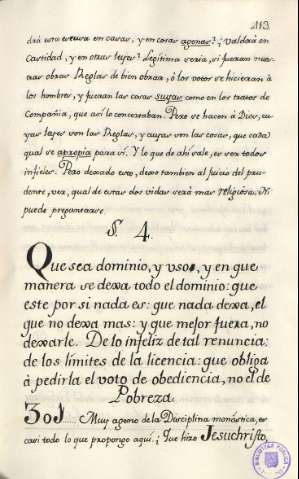 213
drá esta escusa en casas, y en cosas agenas? ¿Valdrá en
Castidad, y en otras leyes? Legitima sería, si fueran nues-
tras obras Reglas de bien obrar, ó los votos se hicieran à
los hombres, y fueran las cosas suyas como en los tratos de
Compañía, que así lo concertaban. Pero se hacen à Dios, cu-
yas leyes son las Reglas, y cuyas son las cosas, que cada
qual se apropia para sí. Y lo que de ahí sale, es ser todos
infieles. Pero dexado eso, dexo tambien al juicio del pru-
dente, vea, qual de estas dos vidas será mas religiosa. Ni
puede preguntarse.
§. 4.
Que sea dominio, y uso, y en que
manera se dexa todo el dominio: que
este por si nada es: que nada dexa, el
que no dexa mas: y que mejor fuera, no
dexarle. De lo infeliz de tal renuncia:
de los límites de la licencia: que obliga
à pedirla el voto de obediencia, no el de
Pobreza.
301 Muy ageno de la Disciplina monástica, es
casi todo lo que propongo aquí. ¿Que hizo Jesuchristo,